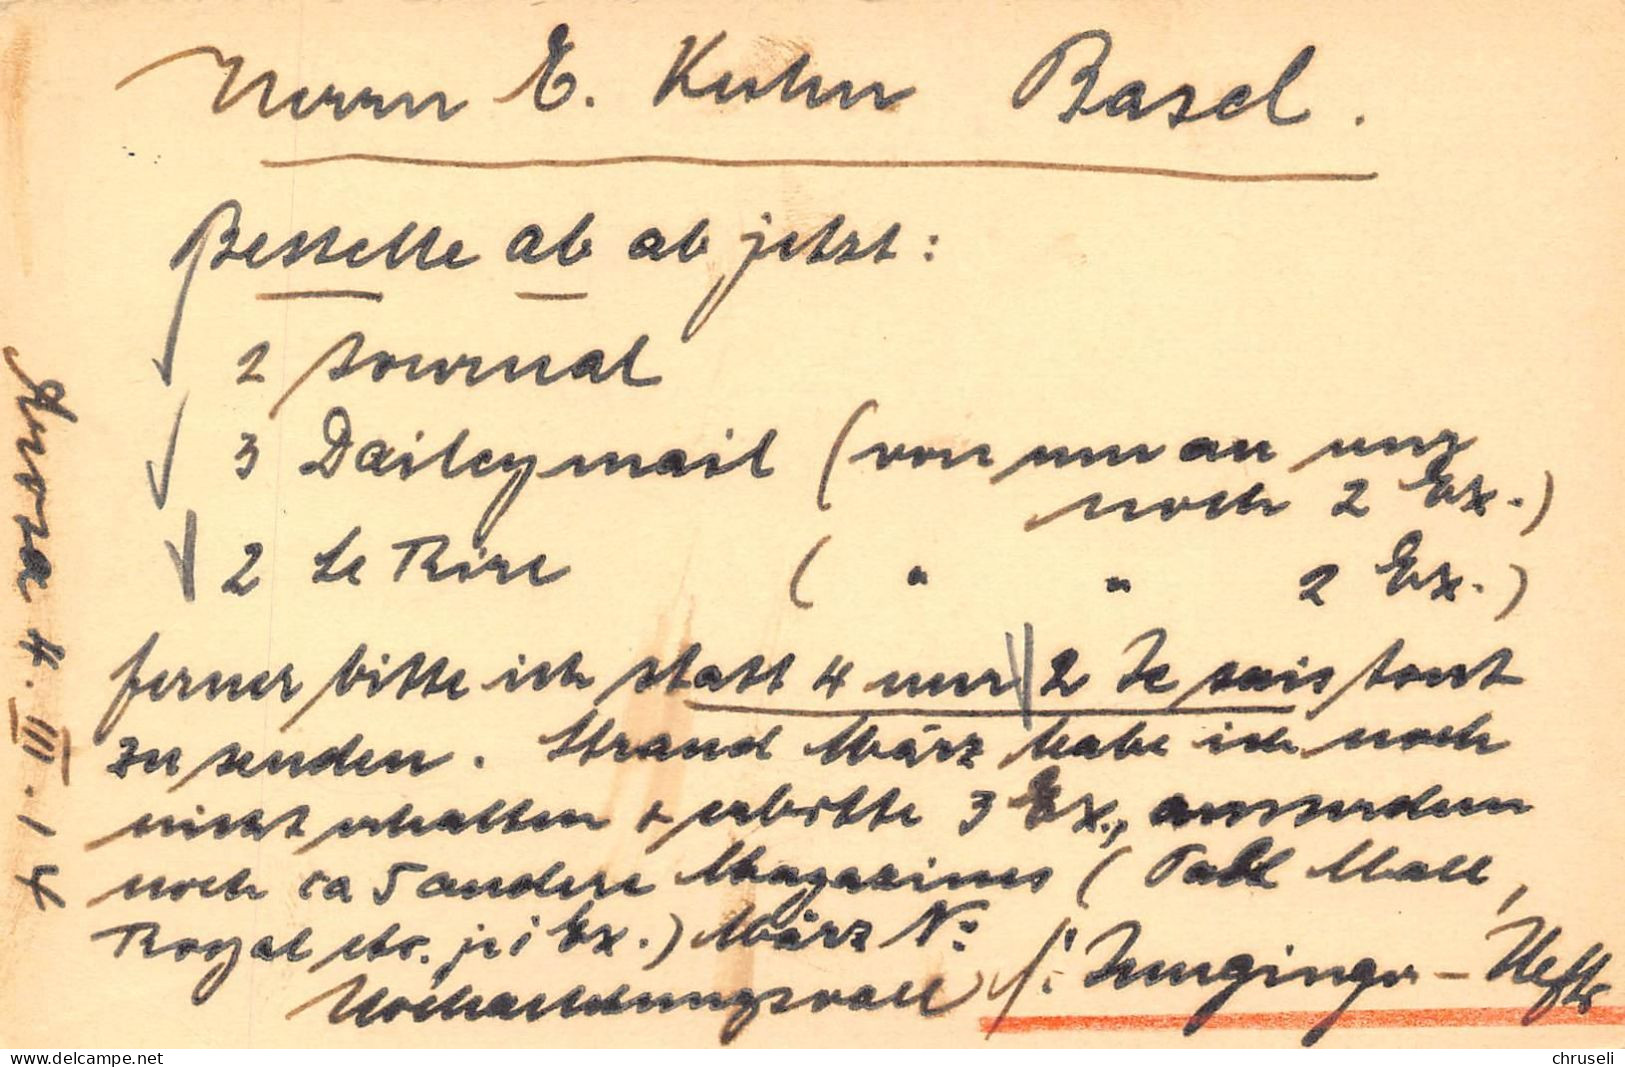 Herrn E. Kuhn Basel.
Bestelle ab ab jetzt:
2 Journal
3 Daileymail (von nun an nur
noch 2 Ex.)
2 Le Rire ( " " 2 Ex.)
ferner bitte ich statt 4 nur 2 Je sais tout
zu senden. Strand März habe ich noch
nicht erhalten + erbitte 3 Ex., ausserdem
noch ca 5 andere Magazines (Pall Mall,
Royal etc. je 1 Ex.) März No
Hochachtungsvoll
Arosa 4. III. 14
chruseli